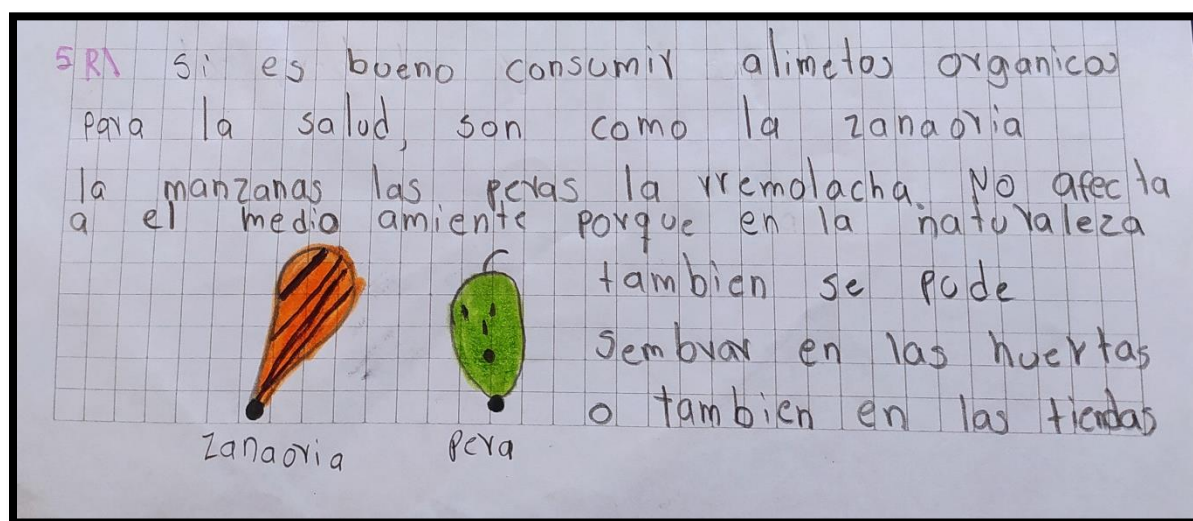 5 R\ si es bueno consumir alimetos organicos
para la salud, son como la zanaoria
la manzanas las peras la rremolacha. No afecta
a el medio amiente porque en la naturaleza
tambien se pude
sembrar en las huertas
o tambien en las tiendas
zanaoria pera